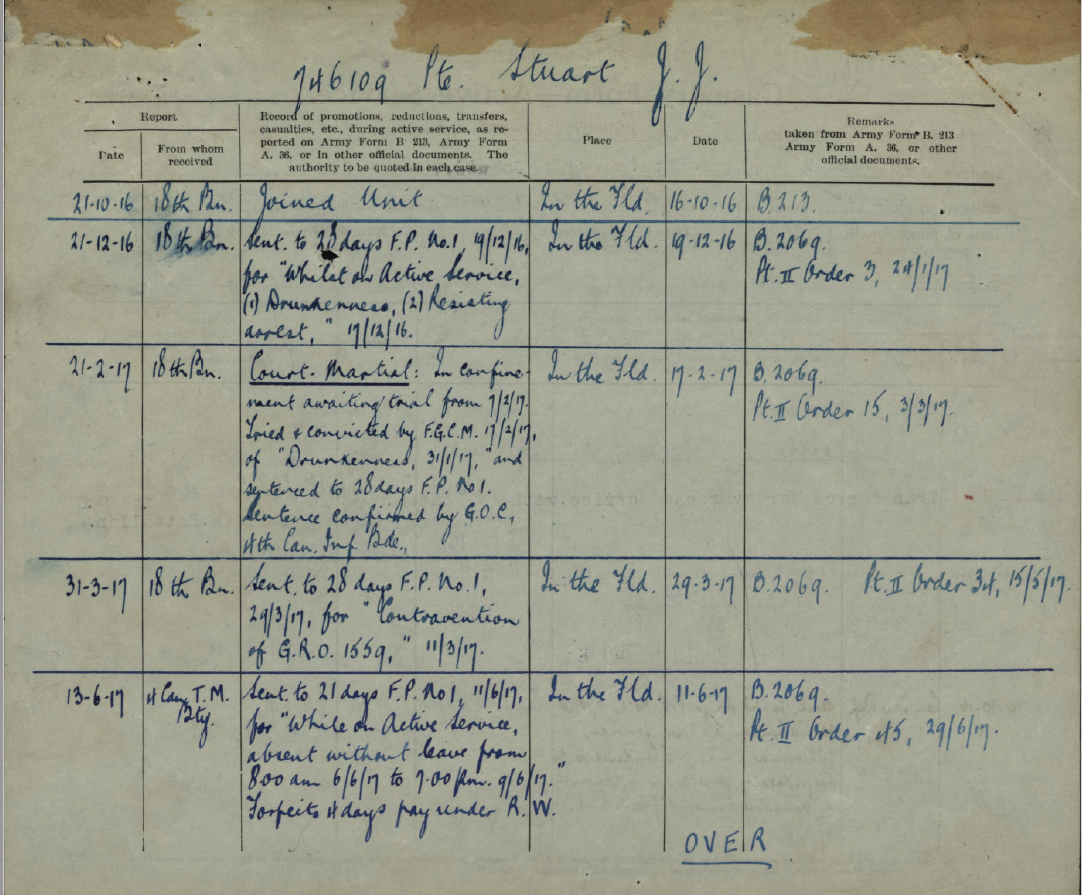 746109 Pte. Stuart J. J.
Report
Date
From whom
received
Record of promotions, reductions, transfers,
casualties, etc., during active service, as re-
ported on Army Form B 213, Army Form
A. 36, or in other official documents. The
authority to be quoted in each case.
Place
Date
Remarks
taken from Army Form B. 213
Army Form A. 36, or other
official documents.
21-10-16 18th Bn. Joined Unit In the Fld. 16-10-16 B.213.
21-12-16 18th Bn. Sent. to 28 days F.P. No.1, 19/12/16, In the Fld. 19-12-16 B.2069.
for "Whilst on Active Service, Pt. II Order 3, 24/1/17
(1) Drunkenness, (2) Resisting
arrest, " 17/12/16.
21-2-17 18th Bn. Court-Martial: In confine- In the Fld. 17-2-17 B.2069.
ment awaiting trial from 7/2/17. Pt. II Order 15, 3/3/17.
Tried & convicted by F.G.C.M. 17/2/17,
of "Drunkenness, 31/1/17," and
sentenced to 28 days F.P. No 1.
Sentence confirmed by G.O.C,
4th Can. Inf. Bde.,
31-3-17 18th Bn. Sent. to 28 days F.P. No. 1, In the Fld. 29-3-17 B.2069. Pt. II Order 34, 15/5/17.
29/3/17, for "Contravention
of G.R.O. 1559," 11/3/17.
13-6-17 4 Can. T.M. Sent. to 21 days F.P. No 1, 11/6/17, In the Fld. 11-6-17 B.2069.
Bty. for "While on Active Service, Pt. II Order 45, 29/6/17.
absent without leave from
8.00 am 6/6/17 to 7.00 p.m. 9/6/17."
Forfeits 4 days pay under R.W.
OVER